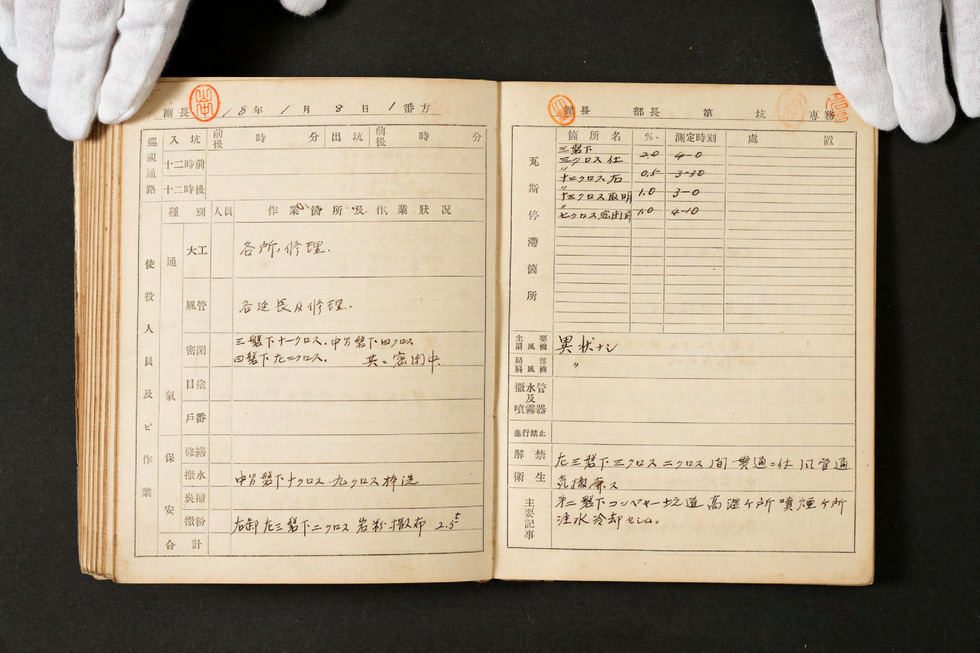 副長 18年 1月 8日 1番方
巡視通路 入坑 前後 時 分 出坑 前後 時 分
十二時前
十二時後
使役人員及ビ作業
種別 人員 作業箇所及作業状況
通氣保安
大工 各所ノ修理.
風管 各延長及修理.
密閉 三盤下十一クロス.中万盤下四クロス
四盤下左二クロス. 共ニ密閉中.
目塗
戸番
修繕
撒水 中万盤下十クロス.九クロス枠洗
炭掃
撒粉 右卸左三盤下二クロス岩粉撒布 2.5
合計
課長 部長 第 坑 専務
瓦斯停滞箇所
箇所名 % 測定時刻 處置
三盤下
三クロス仕 2.0 4-0
〃
十二クロス右 0.5 3-30
〃
十三クロス取明 1.0 3-0
七クロス密閉前 1.0 4-10
主要扇風機 異状ナシ
局部扇風機 〃
撒水管及噴霧器
進行禁止
解禁 左三盤下三クロス二クロス間貫通ニ仕風管通
衛生 気撤廃ス
主要記事 第二盤下コンベヤー坑道高温ケ所噴煙ケ所
注水冷却セシム。